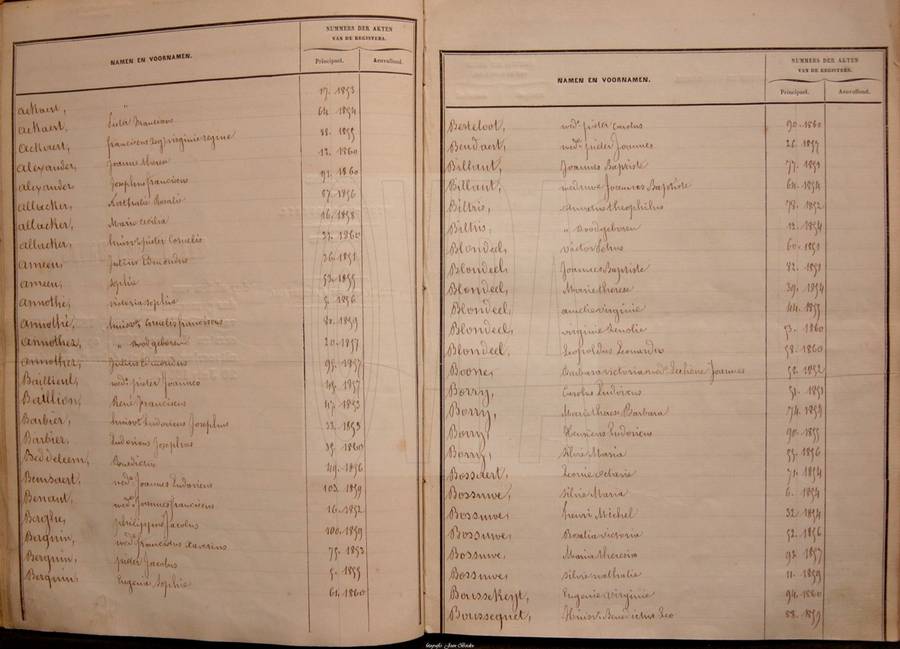 NUMMERS DER AKTEN
VAN DE REGISTERS.
NAMEN EN VOORNAMEN.
Principaal. Aenvullend.
Ackaert, " 17. 1853
Ackaert, Pieter Franciscus 64. 1854
Ackaert, Franciscus virginie regine 88. 1855
Alexander, Joanna Maria 12. 1860
Alexander Josephus Franciscus 92. 1860
Allacker, Nathalie Rosalie 87. 1856
Allacker, Marie Cecilia 16. 1858
Allacker, huisvr. pieter Cornelis 31. 1860
Ameen, Julien Edmondus 36. 1851
Ameen, Sophie 53. 1855
Annothé, victoria sophia 5. 1856
Annothé, huisvr. Cornelis franciscus 80. 1859
Annothée, " Doodgeboren 20. 1857
Annothée, Julien Edmondus 95. 1857
Baillient, wede. pieter Joannes 49. 1857
Baillion, René Franciscus 47. 1853
Barbier, huisvr. Ludovicus Josephus 33. 1853
Barbier, Ludovicus Josephus 35. 1860
Beddeleem, Benedictus 49. 1856
Bemsaert, wede. Joannes Ludovicus 103. 1859
Benant, wede. Joannes franciscus 16. 1852
Berghe, philippus Jacobus 100. 1859
Berquin, wede. franciscus Xaverius 75. 1852
Berquin, pieter Jacobus 5. 1855
Berquin, Eugenia Sophie 61. 1860
NUMMERS DER AKTEN
VAN DE REGISTERS.
NAMEN EN VOORNAMEN.
Principaal. Aenvullend.
Besteloot, wede. pieter Carolus 90. 1860
Beudaert, wede. pieter Joannes 25. 1857
Billiant, Joannes Baptiste 77. 1851
Billiant, weduwe Joannes Baptiste 64. 1854
Biltris, theophilus 78. 1852
Biltris, " Doodgeboren 12. 1854
Blondeel, victor 60. 1851
Blondeel, Joannes Baptiste 82. 1851
Blondeel, Marie therese 39. 1854
Blondeel, amelie virginie 44. 1855
Blondeel, virginie Leonie 53. 1860
Blondeel, Leopoldus Leonardus 58. 1860
Boone, Barbara victoria wede. Joannes 52. 1852
Borry, Carolus Ludovicus 51. 1853
Borry, Marie theresia Barbara 74. 1854
Borry, Henricus Ludovicus 90. 1855
Borry, Silvie Maria 55. 1856
Bossaert, Leonie octavie 71. 1854
Bossuwe, Silvie Maria 6. 1854
Bossuwe, henri Michel 32. 1854
Bossuwe, Rosalia victoria 52. 1856
Bossuwe, Maria theresia 92. 1857
Bossuwe, Silvie nathalie 11. 1859
Boussekeyt, Eugenie virginie 94. 1860
Boussequet, Huisvr. Benedictus Leo 88. 1859